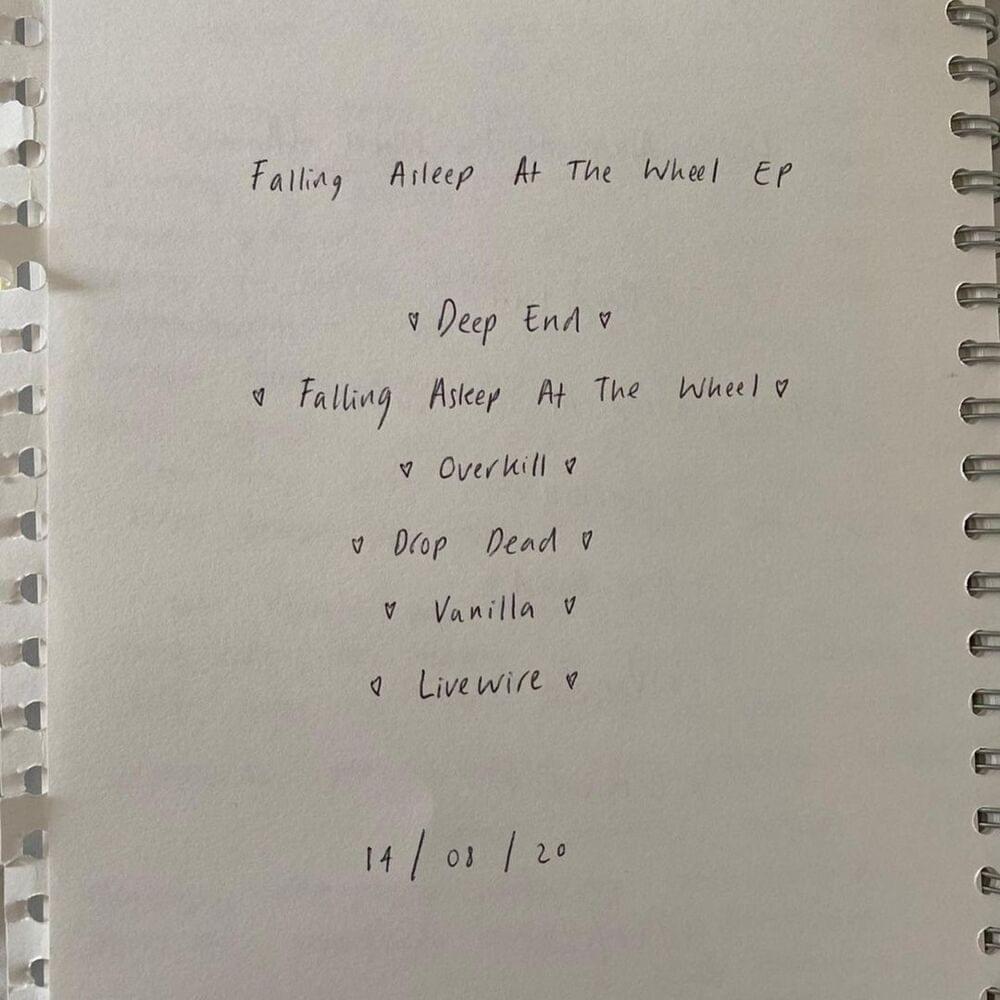 Falling Asleep At The Wheel EP
♡ Deep End ♡
♡ Falling Asleep At The Wheel ♡
♡ Overkill ♡
♡ Drop Dead ♡
♡ Vanilla ♡
♡ Livewire ♡
14 / 08 / 20